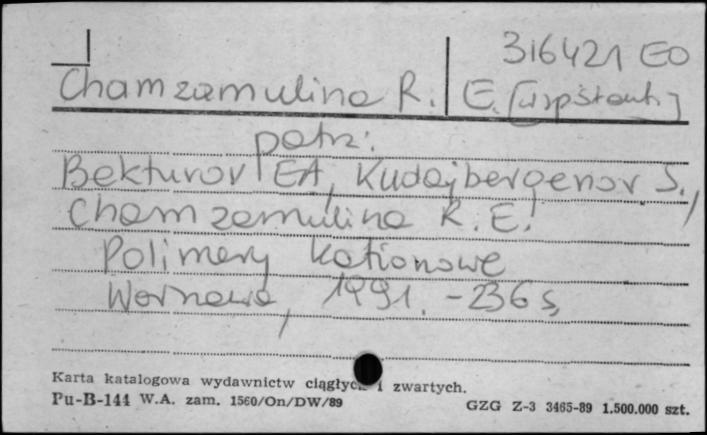 316421 EO
Chamzamulina R. E. [współaut.]
patrz:
Bekturov EA, Kudajbergenov S.,
Chamzamulina R. E.
Polimery kationowe
Warszawa, 1991. - 236 s,
Karta katalogowa wydawnictw ciągłych i zwartych.
Pu-B-144 W.A. zam. 1560/On/DW/89 GZG Z-3 3465-89 1.500.000 szt.